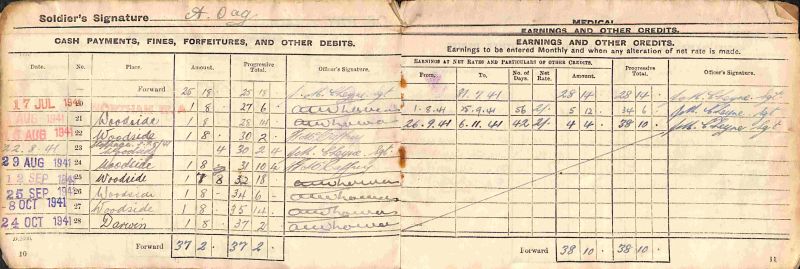 Soldier's Signature A. Dag
CASH PAYMENTS, FINES, FORFEITURES, AND OTHER DEBITS.
Date. No. Place. Amount. Progressive Total. Officer's Signature.
Forward 25 18 25 18
17 JUL 1941 20 1 8 · 27 6
AUG 1941 21 Woodside 1 8 28 14
AUG 1941 22 Woodside 1 8 · 30 2
22.8.41 23 4 30 2 4 Cheyne Sgt
29 AUG 1941 24 Woodside 1 8 31 10 4
12 SEP 1941 25 Woodside 1 8 32 18
25 SEP 1941 26 Woodside 1 8 · 34 6
-8 OCT 1941 27 Woodside 1 8 · 35 14
24 OCT 1941 28 Darwin 1 8 · 37 2
Forward 37 2 · 37 2 ·
10
MEDICAL
EARNINGS AND OTHER CREDITS.
EARNINGS AND OTHER CREDITS.
Earnings to be entered Monthly and when any alteration of net rate is made.
EARNINGS AT NET RATES AND PARTICULARS OF OTHER CREDITS.
From. To. No. of Days. Net Rate. Amount. Progressive Total. Officer's Signature.
31.7.41 28 14 28 14 Cheyne Sgt
1.8.41 25.9.41 56 2/- 5 12 34 6 Cheyne Sgt
26.9.41 6.11.41 42 2/- 4 4 38 10 Cheyne Sgt
Forward 38 10 · 38 10 ·
11